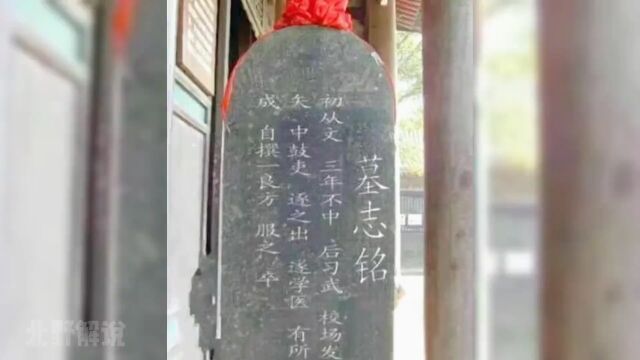 墓志铭
初从文 三年不中 后习武 校场发
矢 中鼓吏 逐之出 遂学医 有所
成 自撰一良方 服之 卒
北野解说